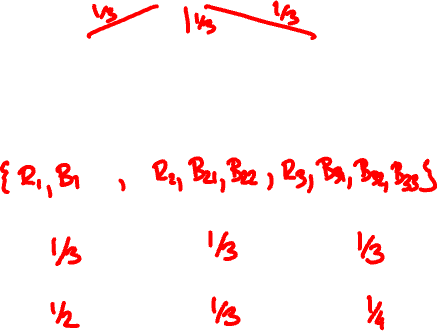 1/3 1/3 1/3
{R₁, B₁, R₂, B₂₁, B₂₂, R₃, B₃₁, B₃₂, B₃₃}
1/3 1/3 1/3
1/2 1/3 1/4